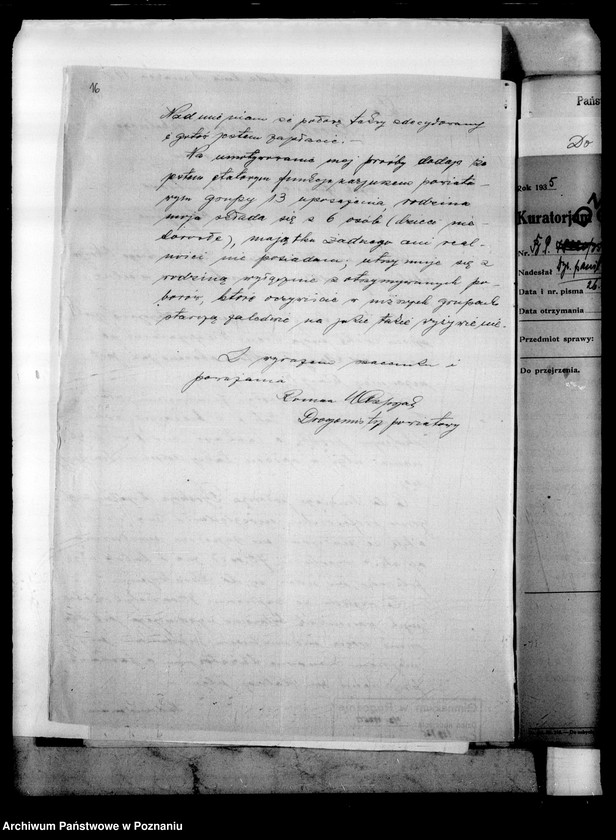 16
Nadmieniam że połowę taksy zdecydowany
i gotów jestem zapłacić. –
Na umotywowanie mej prośby dodaję że
jestem etatowym funkcjonarjuszem powiato-
wym grupy 13 uposażenia, rodzina
moja składa się z 6 osób (dzieci nie-
dorosłe), majątku żadnego ani real-
ności nie posiadam, utrzymuję się z
rodziną wyłącznie z otrzymywanych po-
borów, które oczywiście w niższych grupach
starczą zaledwie na jakie takie wyżywienie.
Z wyrazem szacunku i
poważania
Roman
Drogomistrz powiatowy
Pańs
Do
Rok 1935
Kuratorjum
Nr.
Nadesłał
Data i nr. pisma 26.
Data otrzymania
Przedmiot sprawy:
Do przejrzenia.
Archiwum Państwowe w Poznaniu